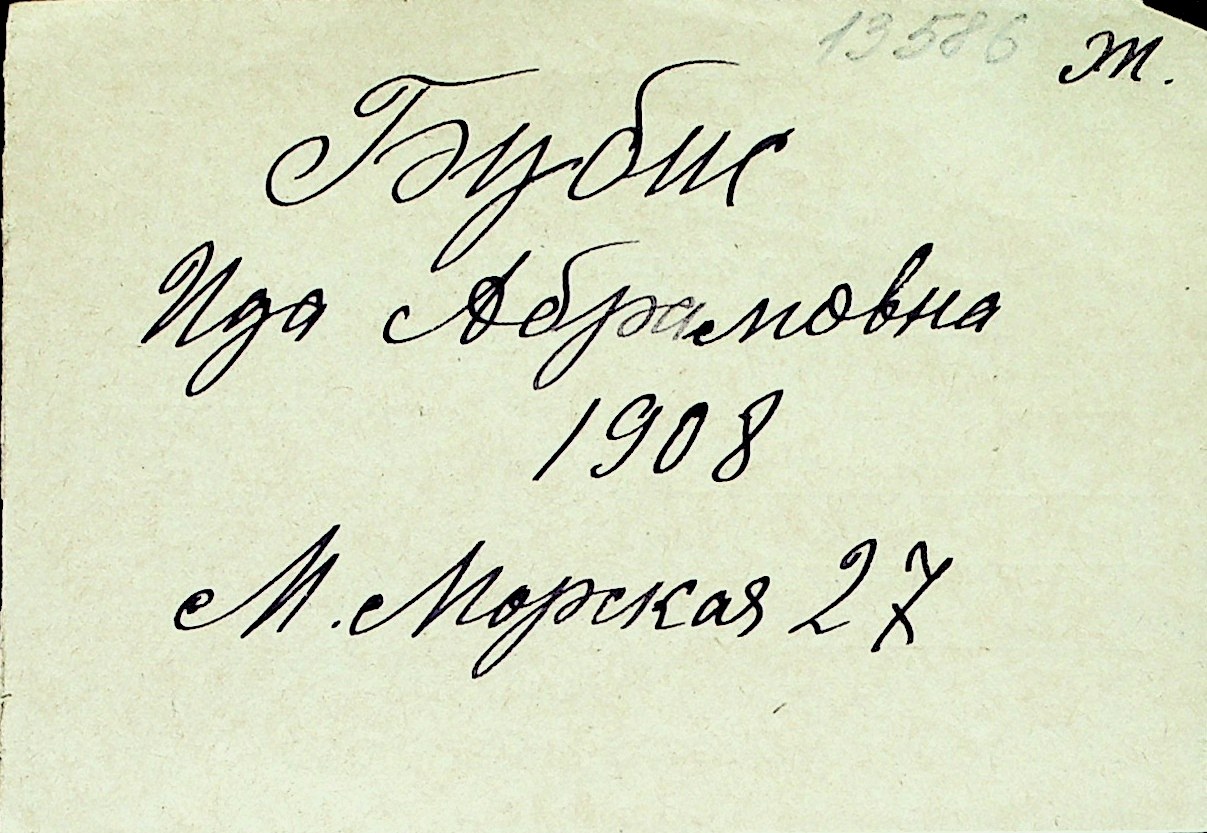 13586 Ж.
Бубис
Ида Абрамовна
1908
М. Морская 27